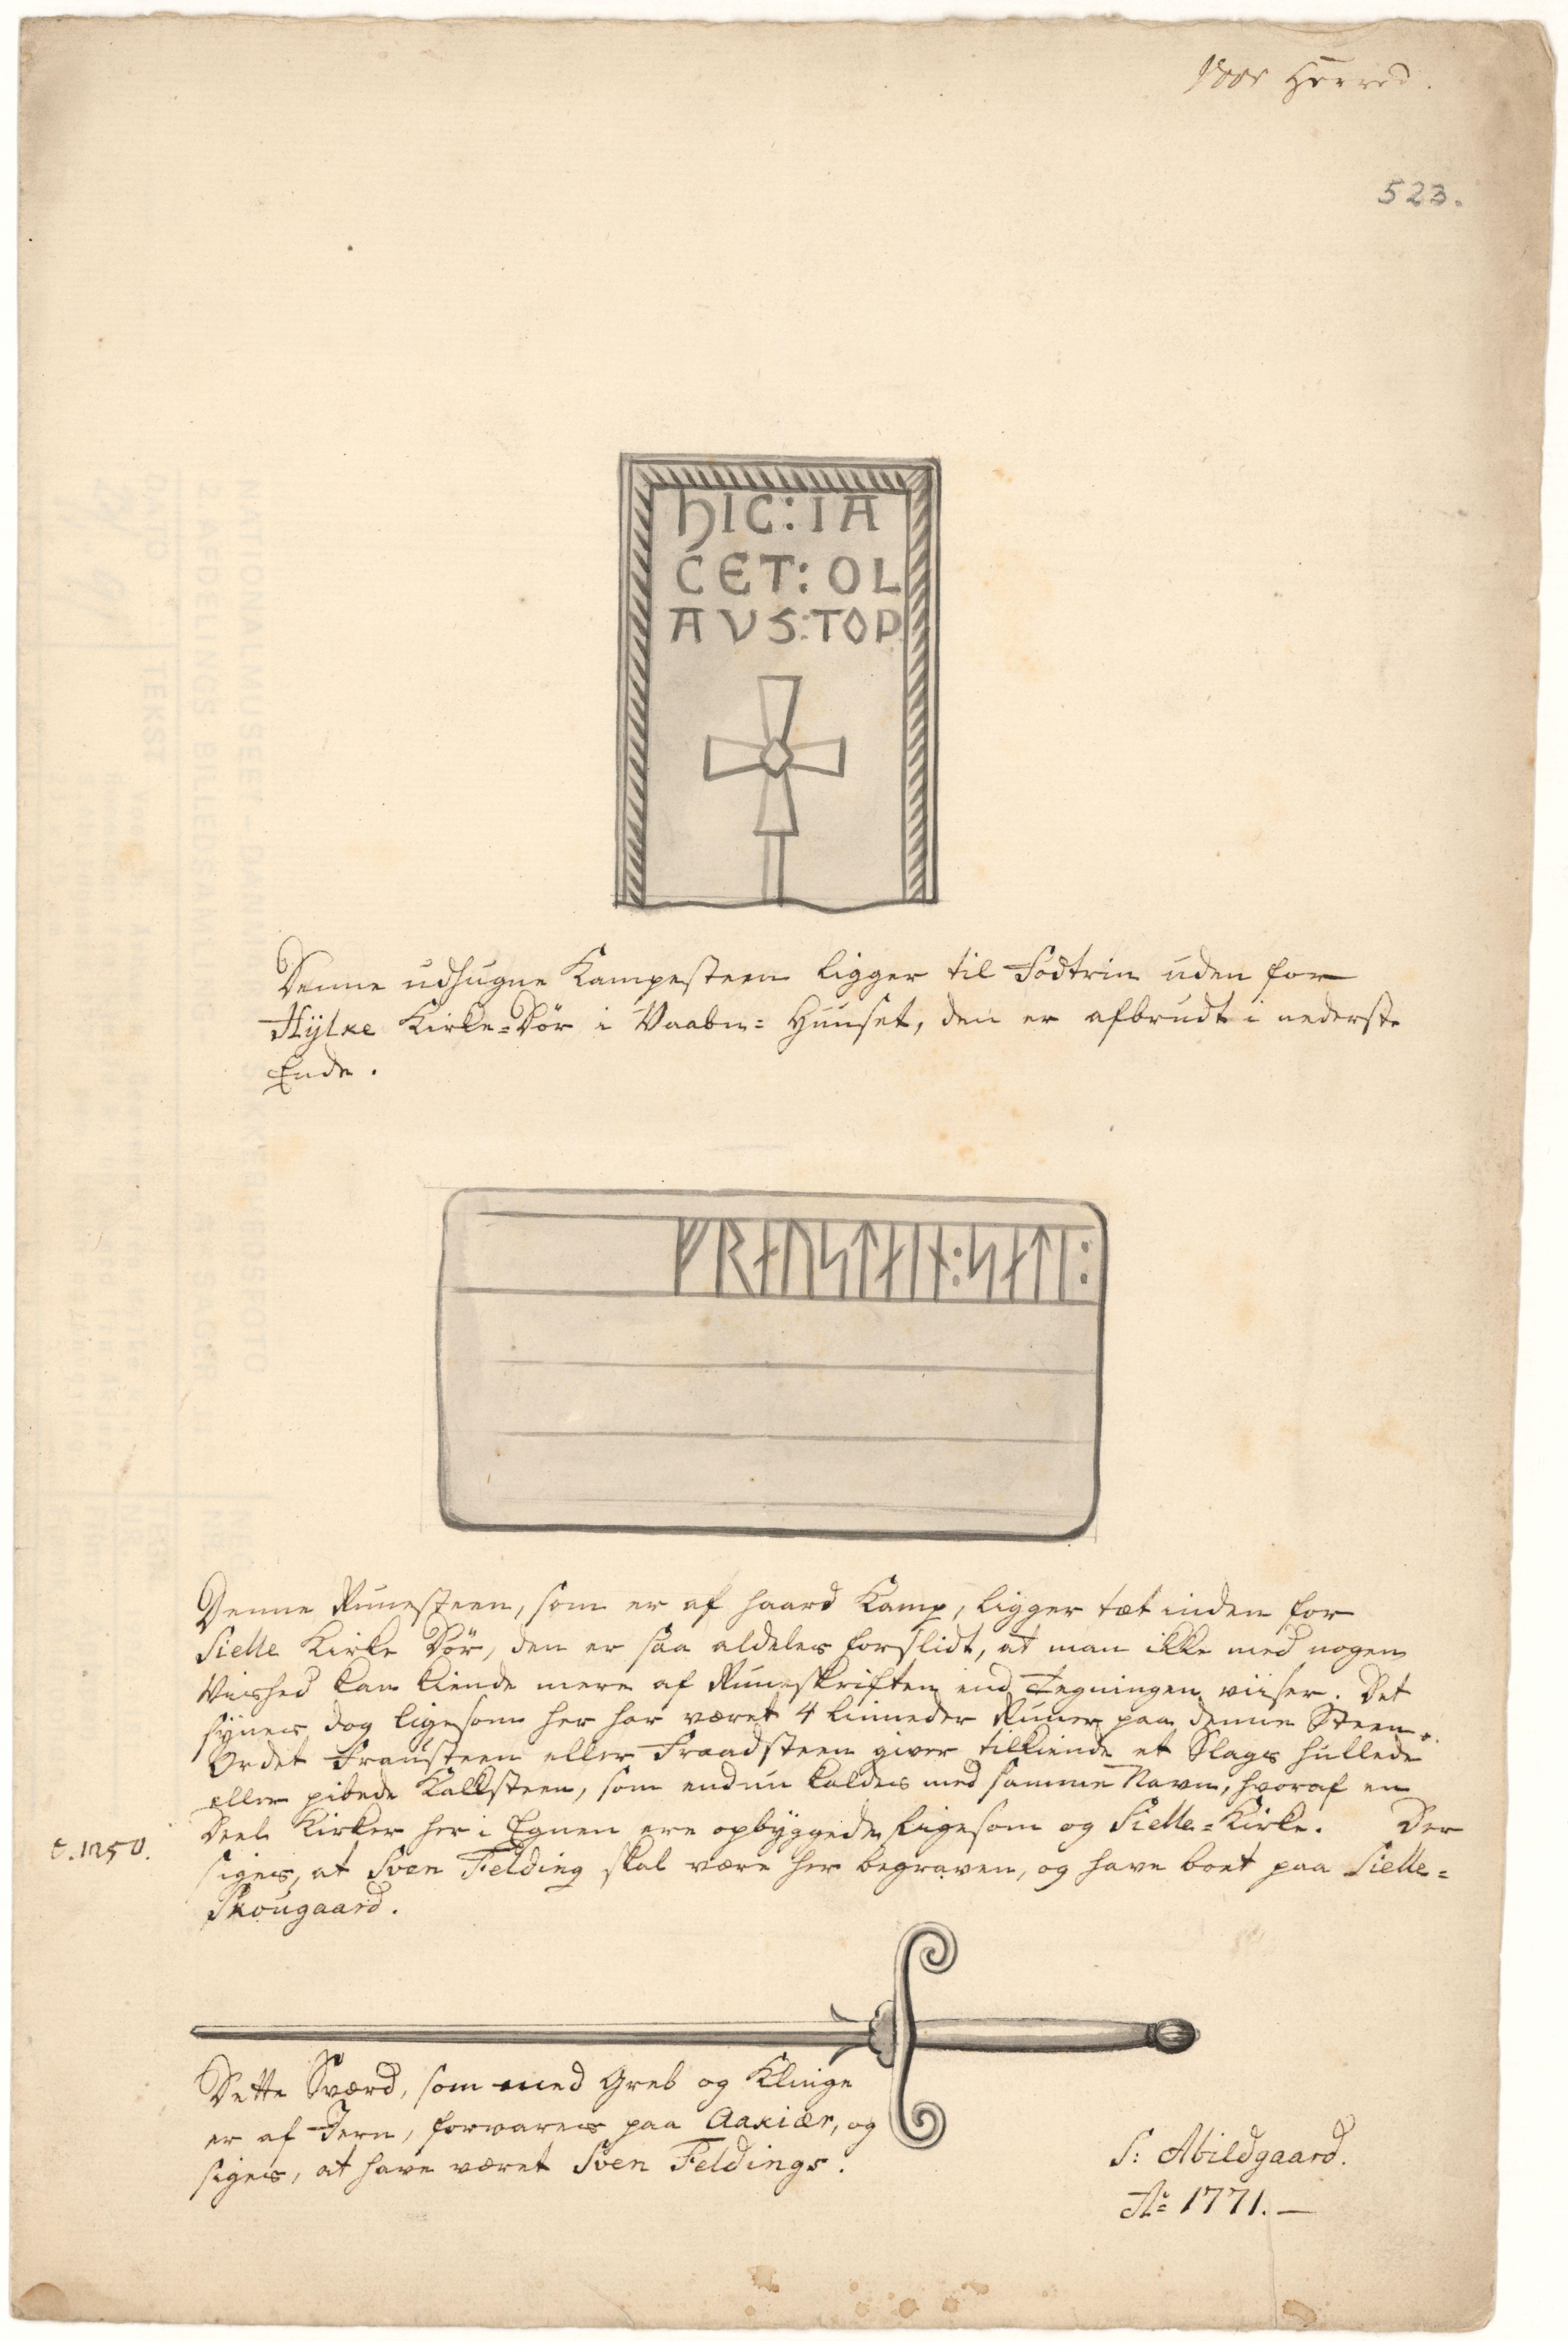 Voer Herred.
523.
HIC:IA
CET:OL
AVS:TOP
Denne udhugne Kampesteen ligger til Fodtrin uden for
Hÿlke Kirke=Dör i Vaabn=Huuset, den er afbrudt i nederste
Ende.
ᚠᚱᛅᚢᛋᛏᛅᛁᚾ:ᛋᛅᛏᛁ:
Denne Runesteen, som er af haard Kamp, ligger tæt inden for
Sielle Kirke Dör, den er saa aldeles forslidt, at man ikke med nogen
Vished kan kiende mere af Runeskriften end Tegningen viiser. Det
sÿnes dog ligesom her har været 4 linneder Runer paa denne Steen.
Ordet Frausteen eller Fraadsteen giver tilkiende et Slags hullede
eller pibede Kalksteen, som endnu kaldes med samme Navn, hvoraf en
Deel Kirker her i Egnen ere opbÿggede, ligesom og Sielle=Kirke. Der
c. 1250.
siges, at Sven Felding skal være her begraven, og have boet paa Sielle=
Skougaard.
Dette Sværd, som med Greb og Klinge
er af Jern, forvares paa Aakiær, og
siges, at have været Sven Feldings.
S: Abildgaard.
Aº 1771.—